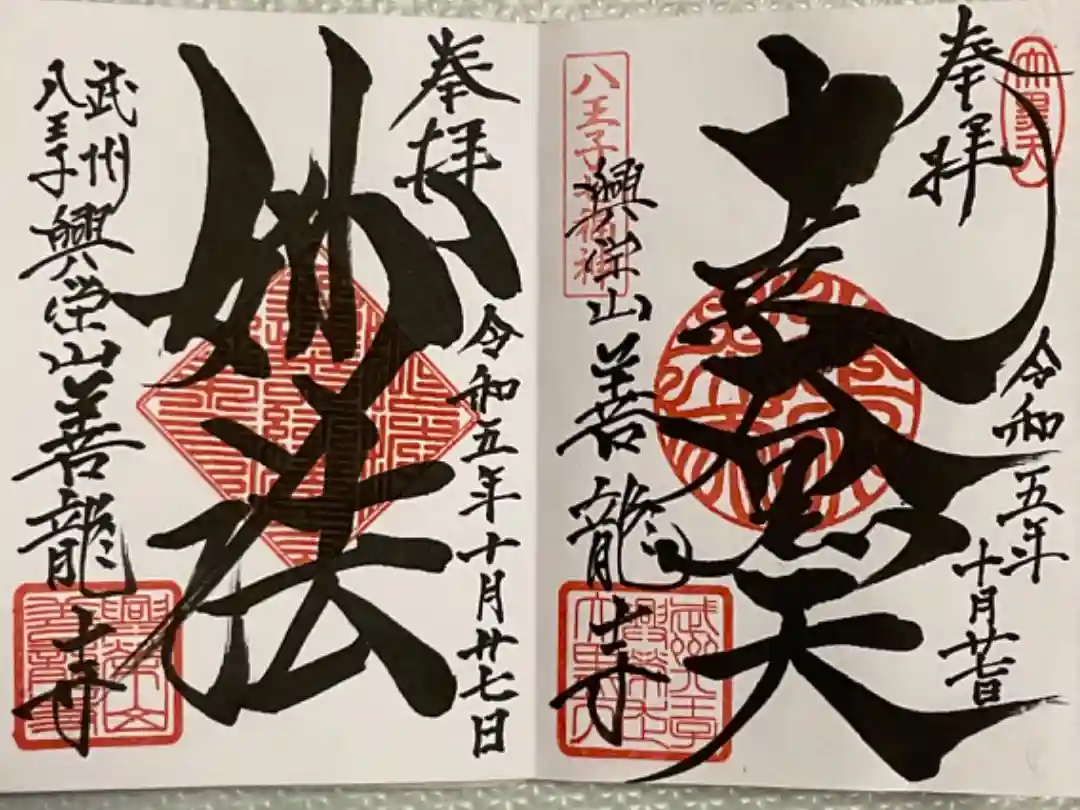 大黒天
奉拝
令和五年
十月廿七日
大黒天
八王子七福神
興栄山善龍寺
奉拝
令和五年十月廿七日
妙法
武州
八王子
興栄山善龍寺